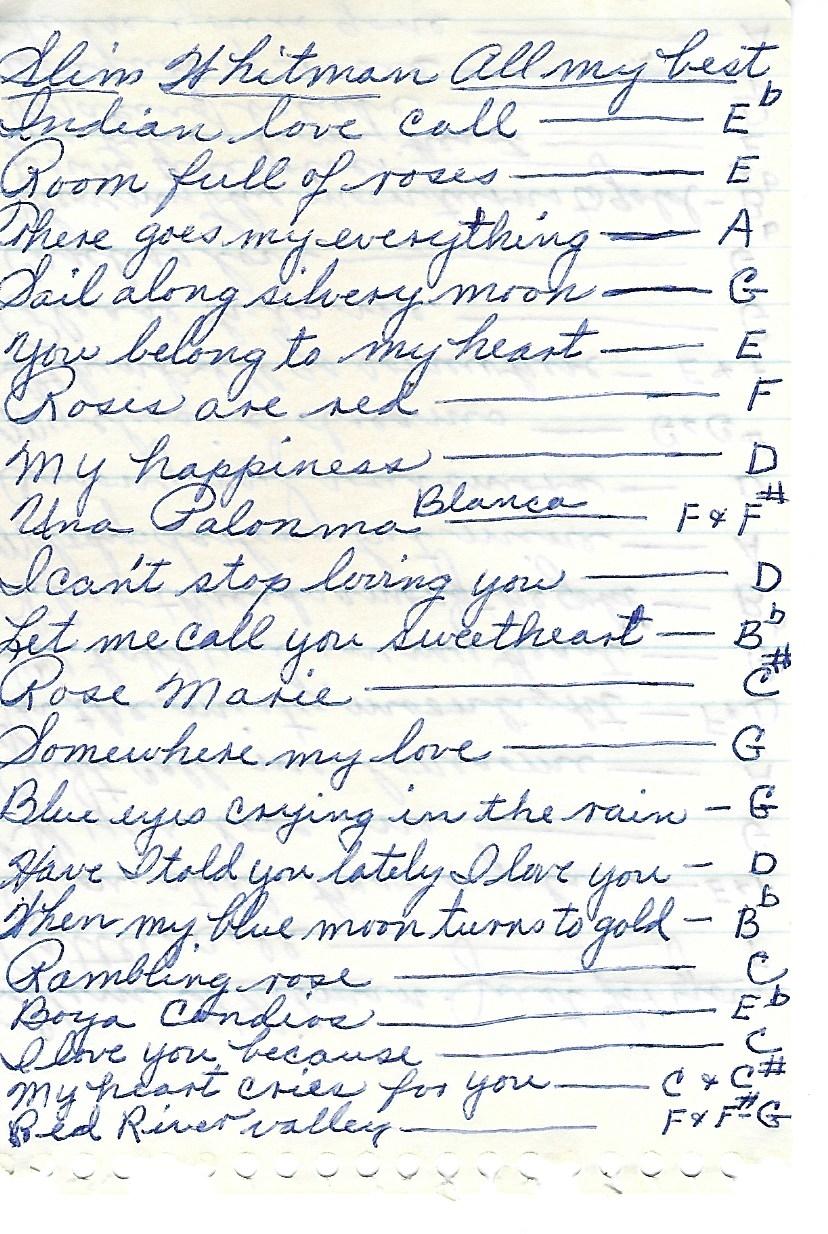 Slim Whitman All my best
Indian love call — E♭
Room full of roses — E
There goes my everything — A
Sail along silvery moon — G
You belong to my heart — E
Roses are red — F
My happiness — D
Una Palonma Blanca — F & F#
I can't stop loving you — D
Let me call you sweetheart — B♭
Rose Marie — C#
Somewhere my love — G
Blue eyes crying in the rain — G
Have I told you lately I love you — D
When my blue moon turns to gold — B♭
Rambling rose — C
Boya Condios — E♭
I love you because — C
My heart cries for you — C & C#
Red River valley — F & F#-G